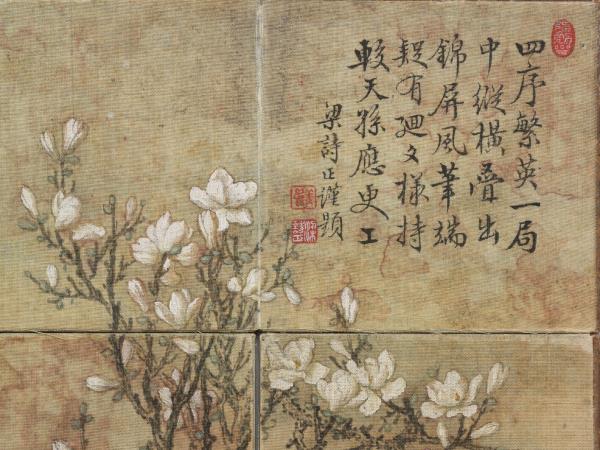 四序繁英一局
中縱橫疊出
錦屏風筆端
疑有廻文樣持
較天孫應更工
梁詩正謹題